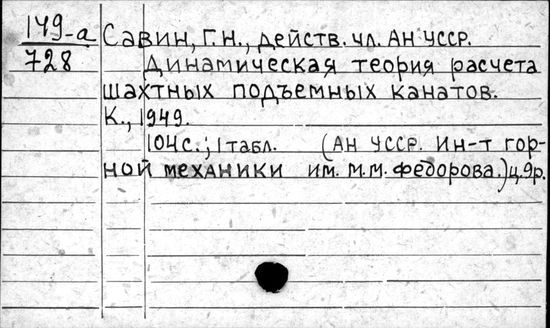 149-а
728
Савин, Г.Н., действ. чл. АН УССР.
Динамическая теория расчета
шахтных подъемных канатов.
К., 1949.
104с.; 1 табл. (АН УССР. Ин-т гор-
ной механики им. М.М. Федорова.) ц.9р.